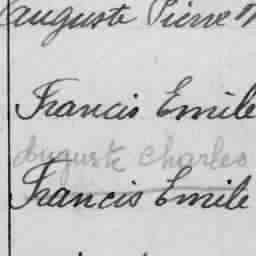 Auguste Pierre
Francis Emile
Auguste Charles
Francis Emile